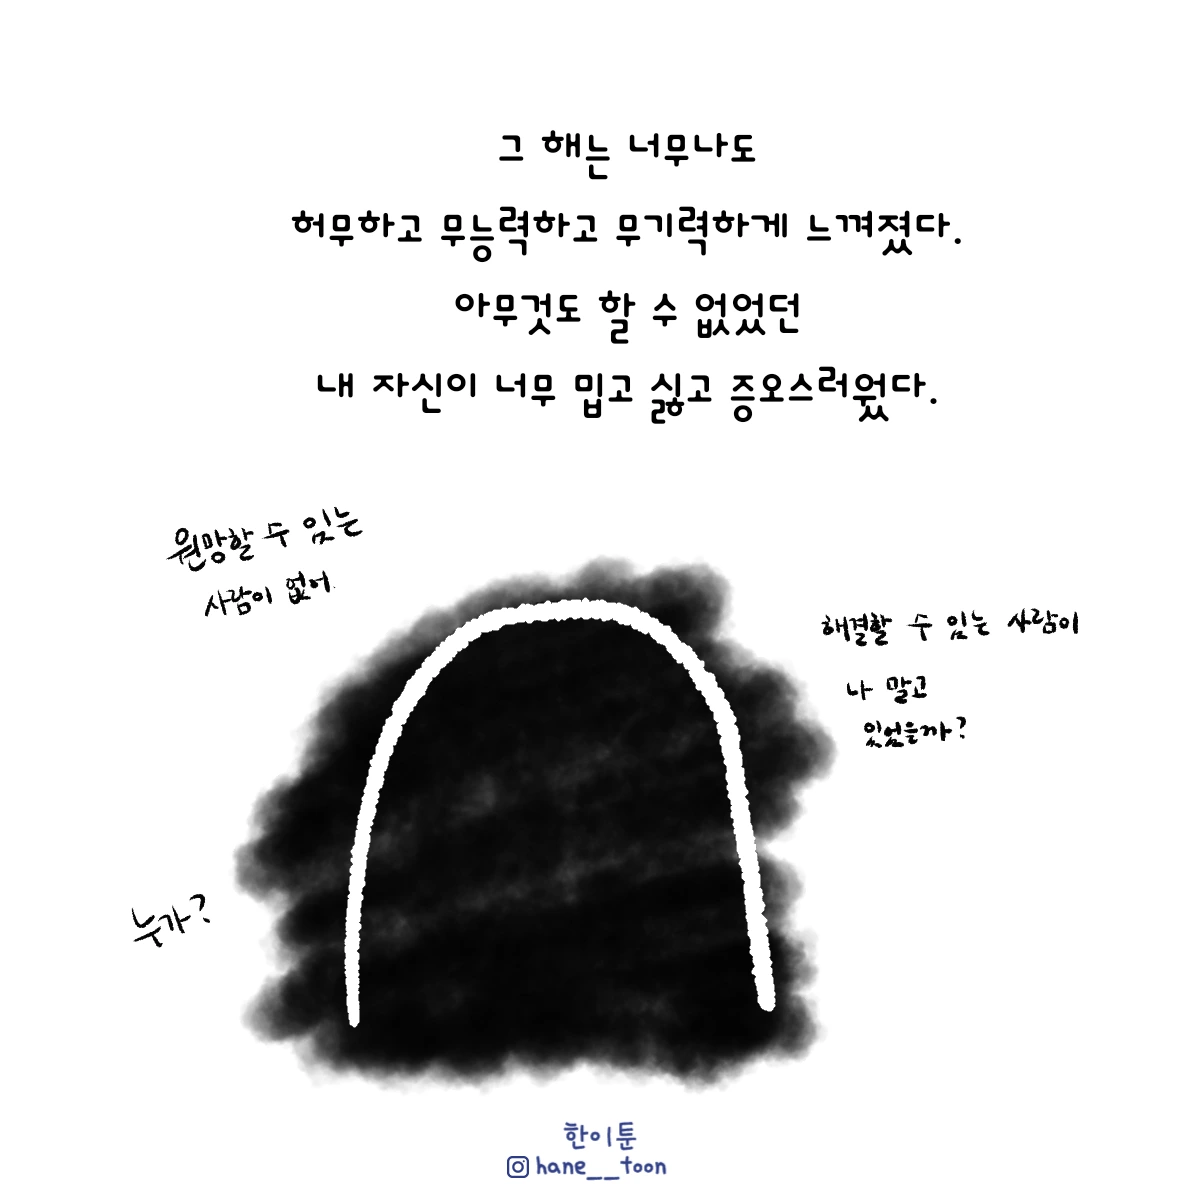 그 해는 너무나도
허무하고 무능력하고 무기력하게 느껴졌다.
아무것도 할 수 없었던
내 자신이 너무 밉고 싫고 증오스러웠다.
원망할 수 있는
사람이 없어
해결할 수 있는 사람이
나 말고
있었을까?
누가?
한이툰
hane__toon